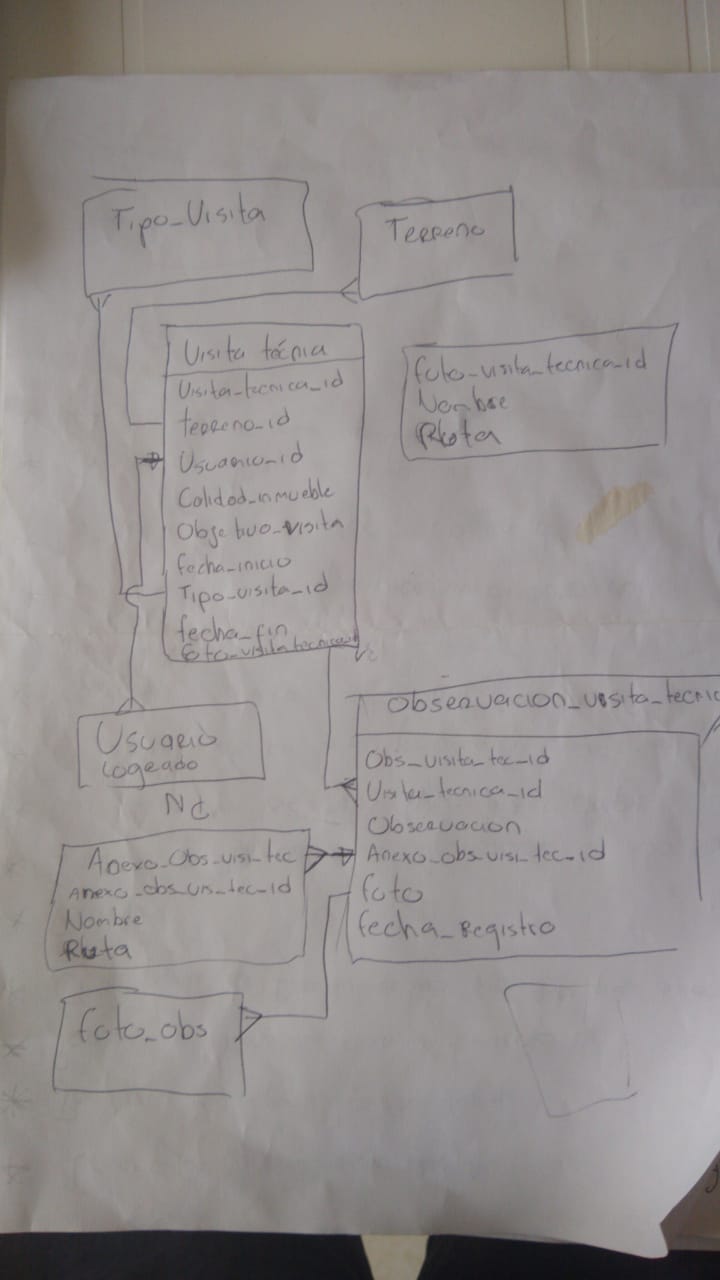 Tipo_Visita
Terreno
Visita técnia
Visita_tecnica_id
terreno_id
Usuario_id
Calidad_inmueble
Objetivo_visita
fecha_inicio
Tipo_visita_id
fecha_fin
foto_visita_tecnica_id
Nombre
Ruta
Usuario
Logeado
Observacion_visita_tecnic
Obs_visita_tec_id
Visita_tecnica_id
Observacion
Anexo_obs_visi_tec_id
foto
fecha_Registro
Anexo_Obs_visi_tec
Anexo_obs_vis_tec_id
Nombre
Ruta
foto_obs